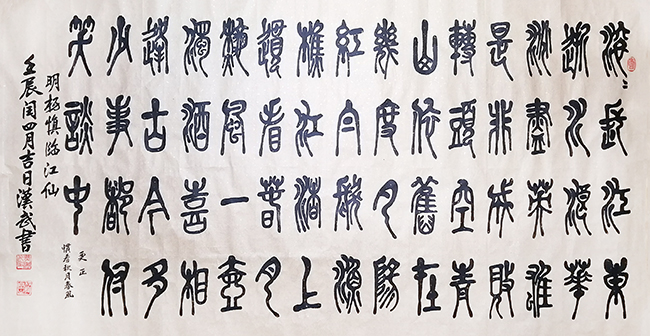 滾〻長江東
逝水浪華
淘盡英雄
是非成敗
轉頭空青
山依舊在
幾度夕陽
紅白髮漁
樵江渚上
慣看春月
秋風一壺
濁酒喜相
逢古今多
少事都付
笑談中
更正
慣看秋月春風
明楊慎臨江仙
壬辰閏四月吉日漢武書